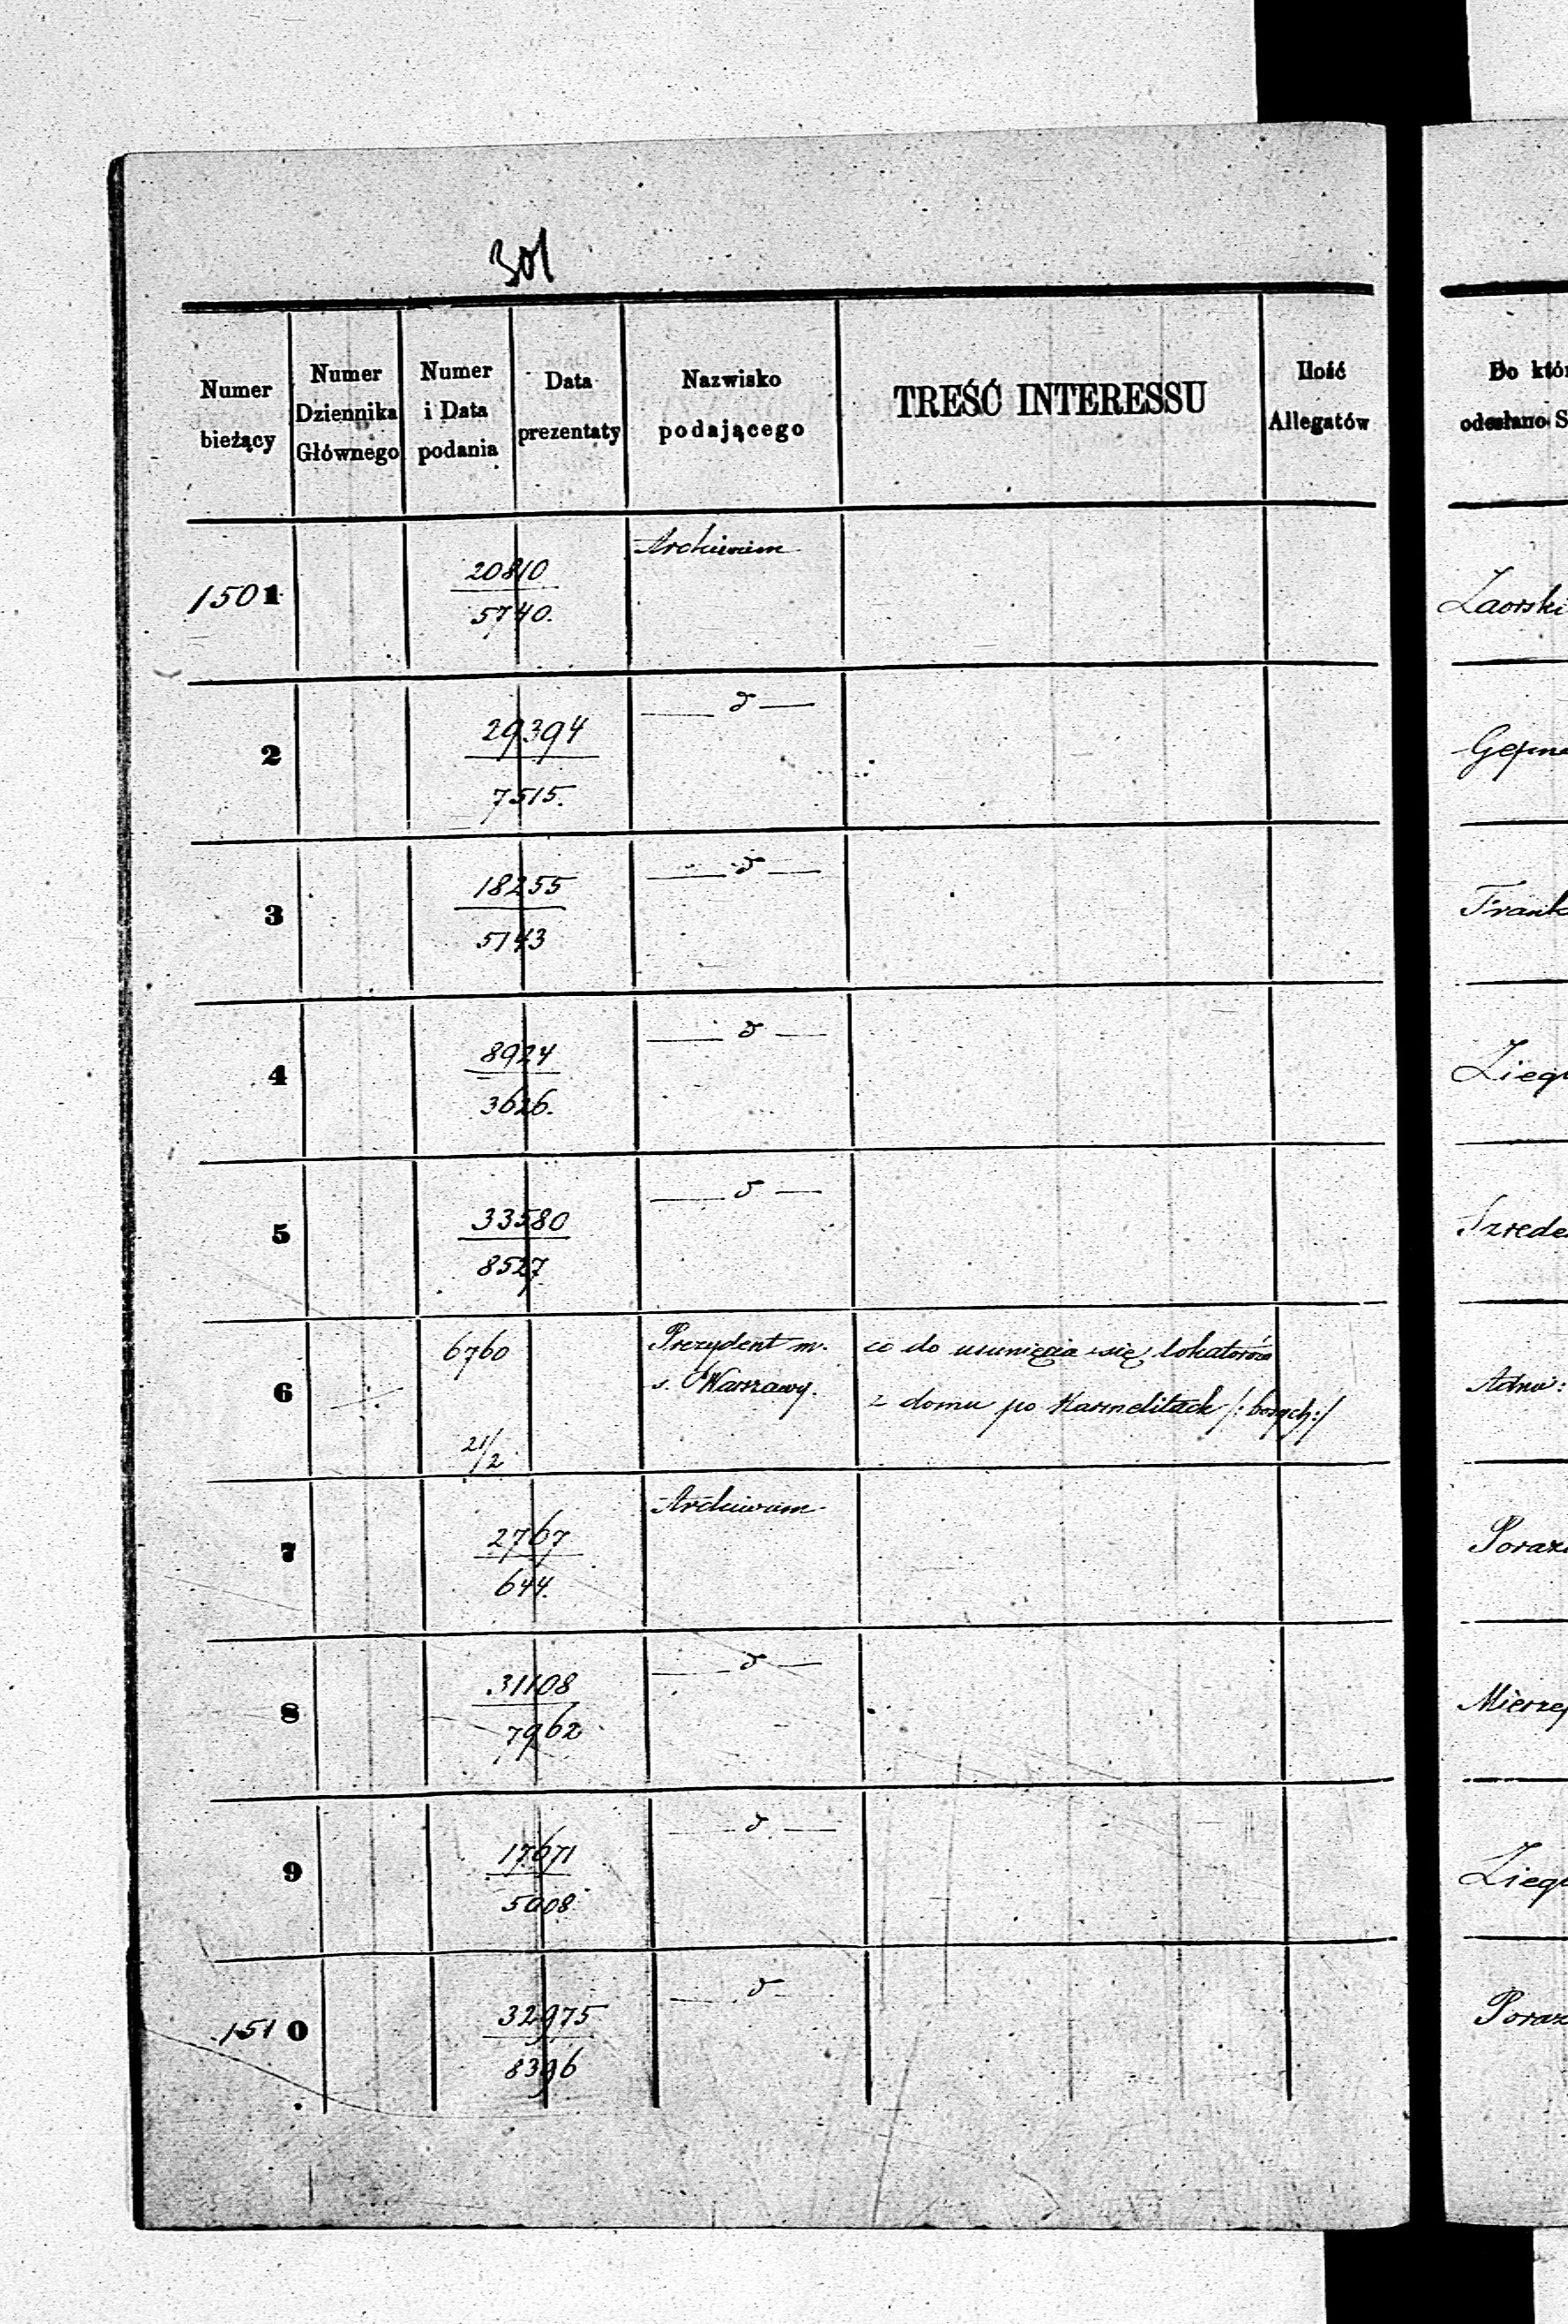 301
Numer bieżący
Numer Dziennika Głównego
Numer i Data podania
Data prezentaty
Nazwisko podającego
TREŚĆ INTERESSU
Ilość Allegatów
Do któr
odesłano S
1501 20810 Archiwum
5740. Zaorski
2 29394 — d —
7515.
3 18255 — d —
5143 Frank
4 8924 — d —
3626. Zieg
5 33580 — d —
8527 Szrede
6 6760 Prezydent m. co do usunięcia się lokatorów
s. Warszawy. z domu po Karmelitach /:bosych:/
21/2 Adwo:
7 2767 Archiwum
644. Poraz
8 31108 — d —
7962 Mierzej
9 17671 — d —
5008 Zieg
1510 32975 — d —
8396 Poraz